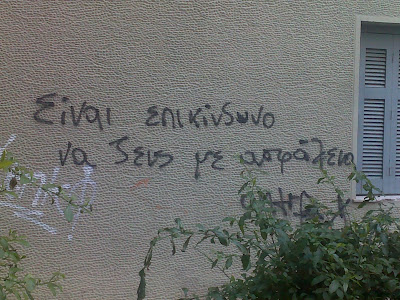 Είναι επικίνδυνο
να ζεις με ασφάλεια